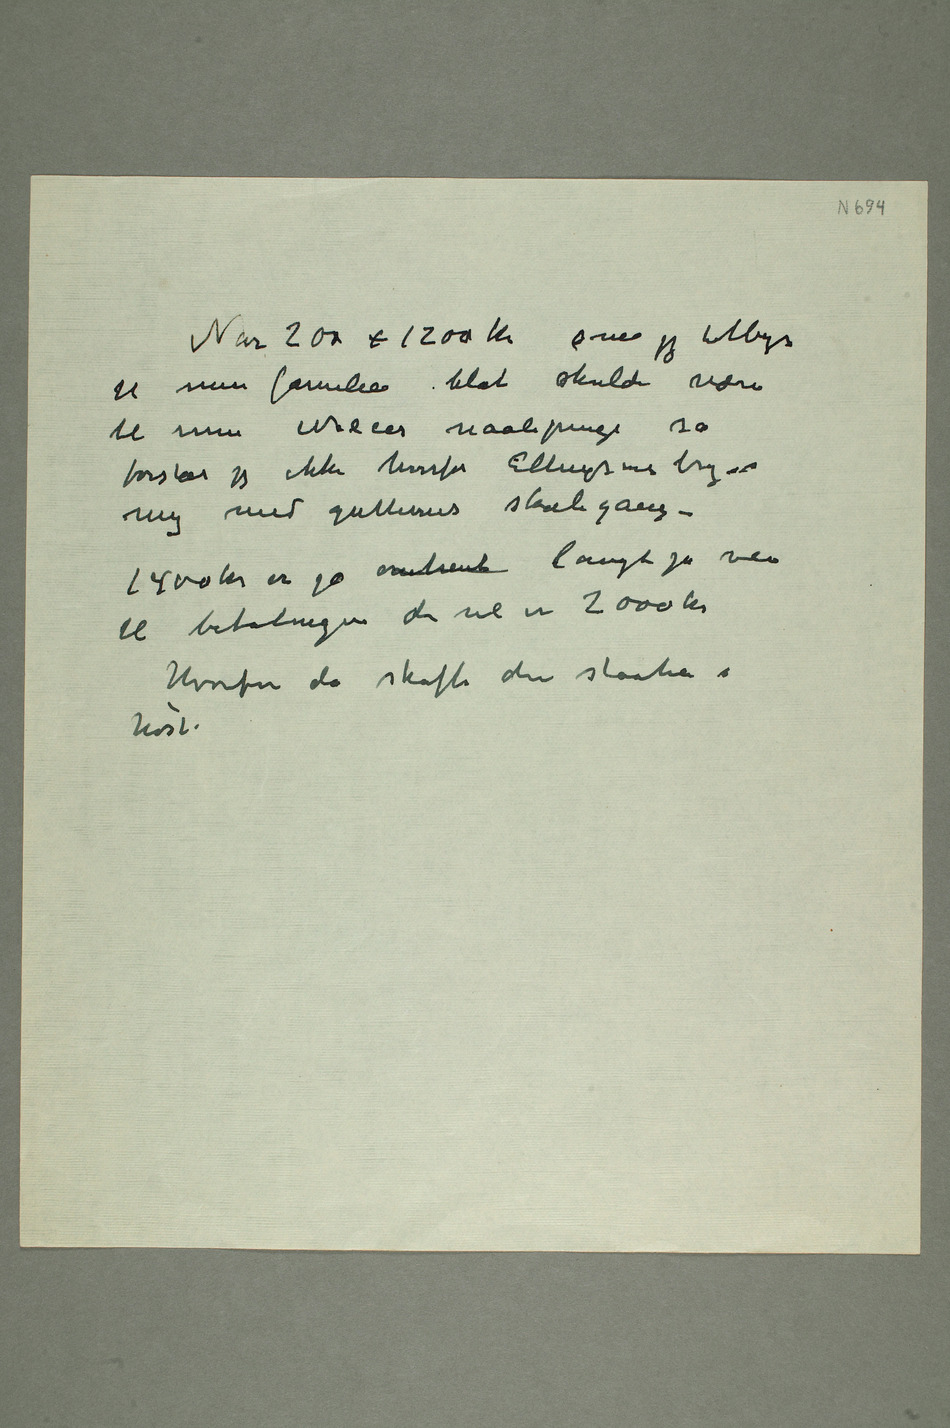 N 694
Når 200 + 1200 kr som jeg tilbyr
til min familie blot skulde være
til min nåalepenge så
forstår jeg ikke hvorfor Ellingsens bry
mig med gutternes skolegang –
1400 kr er jo omtrent langt ja vei
til betalingen da vel er 2000 kr
Hvorfor da skaffe den staaken i
høst.